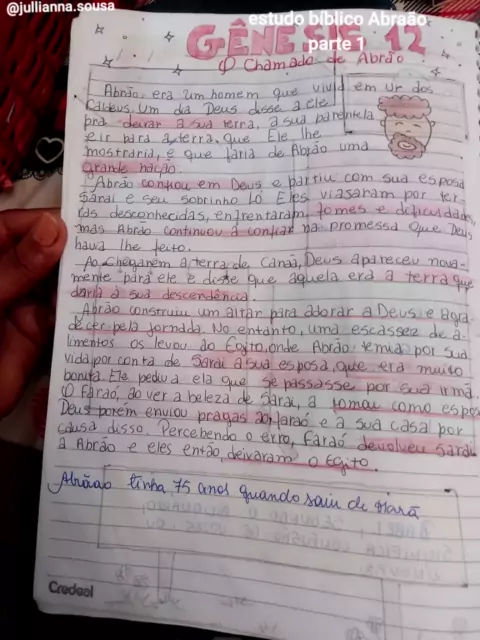 @jullianna.sousa
estudo bíblico Abraão
parte 1
GÊNESIS 12
O Chamado de Abrão
Abrão, era um homem que vivia em Ur dos
Caldeus. Um dia Deus disse a ele
pra deixar a sua terra, a sua parentela
e ir para a terra, que Ele lhe
mostraria, e que faria de Abrão uma
grande nação.
Abrão confiou em Deus e partiu com sua esposa
Sarai e seu sobrinho Ló. Eles viajaram por ter
ras desconhecidas, enfrentaram fomes e dificuldades,
mas Abrão continuou a confiar na promessa que Deus
havia lhe feito.
Ao chegarem a terra de Canaã, Deus apareceu nova-
mente para ele e disse que aquela era a terra que
daria à sua descendência.
Abrão construiu um altar para adorar a Deus e agra-
decer pela jornada. No entanto, uma escassez de a-
limentos os levou ao Egito, onde Abrão temia por sua
vida por conta de Sarai a sua esposa, que era muito
bonita. Ele pediu a ela que se passasse por sua irmã.
O faraó, ao ver a beleza de Sarai, a tomou como espos
Deus porém enviou pragas ao faraó e a sua casa por
causa disso. Percebendo o erro, faraó devolveu Sarai
a Abrão e eles então, deixaram o Egito.
Abrãao tinha 75 anos quando saiu de Harã
Credeal